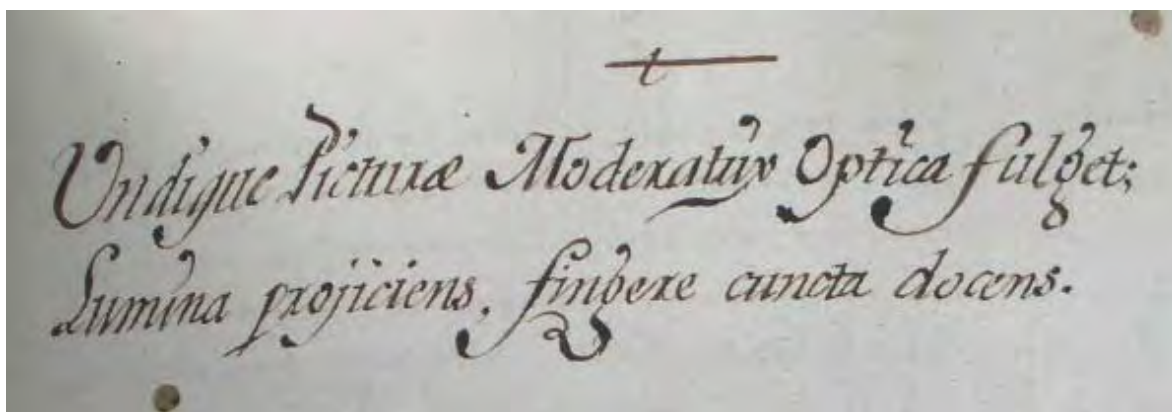 Undique Picturæ Moderatur Optica fulget;
Lumina projiciens, fingere cuncta docens.